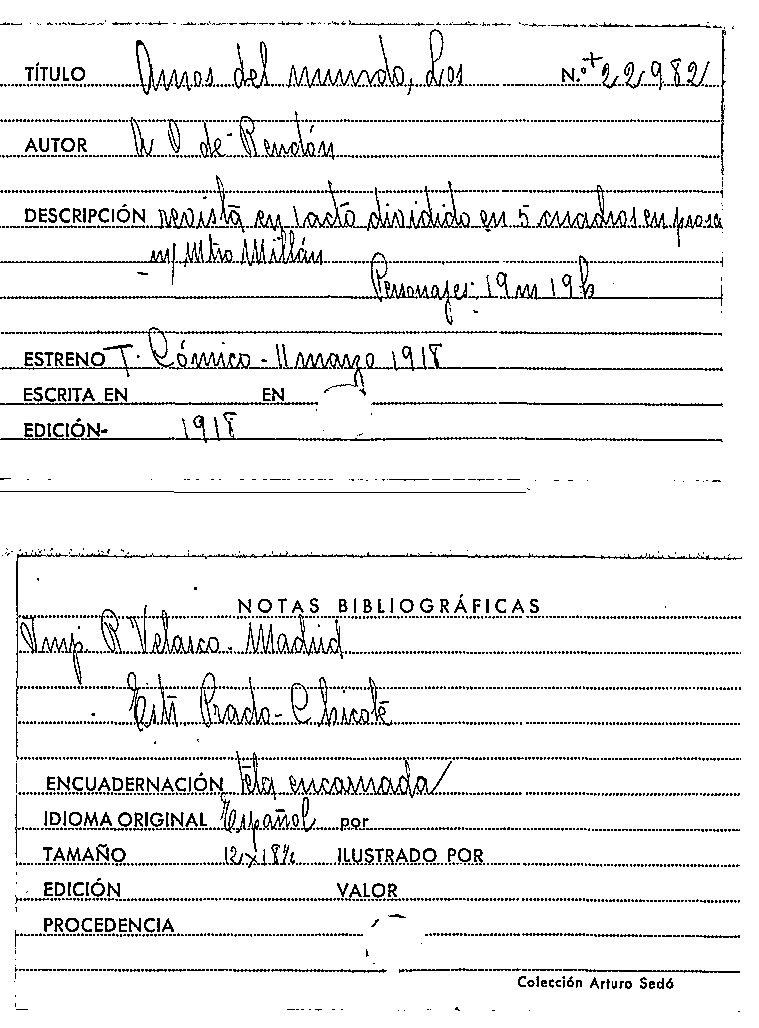 TÍTULO Amos del mundo, Los N.º + 22982
AUTOR de Rendón
DESCRIPCIÓN revista en 1 acto dividido en 5 cuadros en prosa
m/ Mtro Millán
Personajes: 19 m 19 h
ESTRENO T. Cómico - 11 marzo 1918
ESCRITA EN EN
EDICIÓN- 1918
NOTAS BIBLIOGRÁFICAS
Imp R Velasco. Madrid
Estr Prado - Chicote
ENCUADERNACIÓN tela encarnada
IDIOMA ORIGINAL Español por
TAMAÑO 12 x 18½ ILUSTRADO POR
EDICIÓN VALOR
PROCEDENCIA
Colección Arturo Sedó